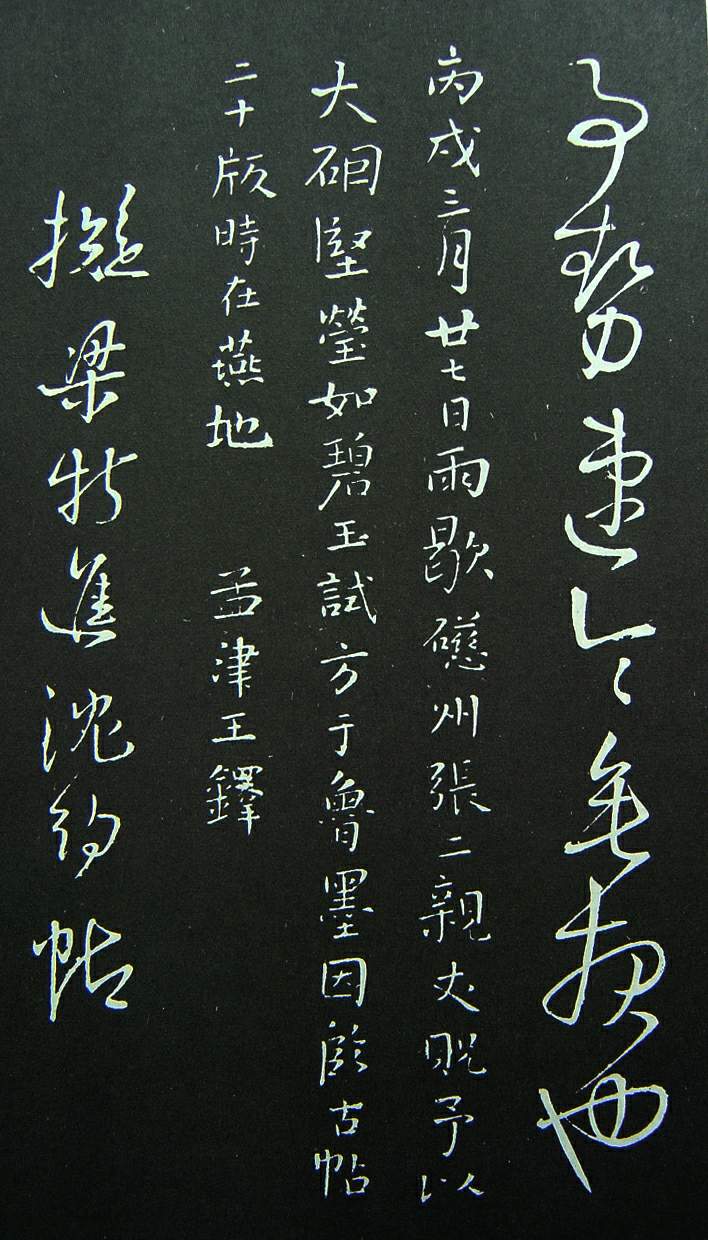 勢速無也
丙戌三月廿七日雨歇礠州張二親丈貺予以
大堅瑩如碧玉試方于魯墨因臨古帖
二十版時在燕地 孟津王鐸
擬梁特進沈約帖